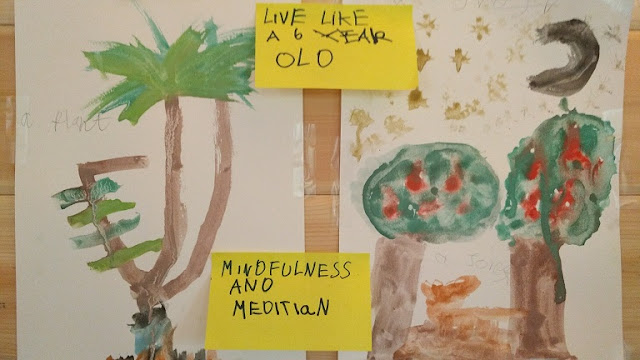 LIVE LIKE
A 6 YEAR
OLD
a plant
MINDFULNESS
AND
MEDITIaN